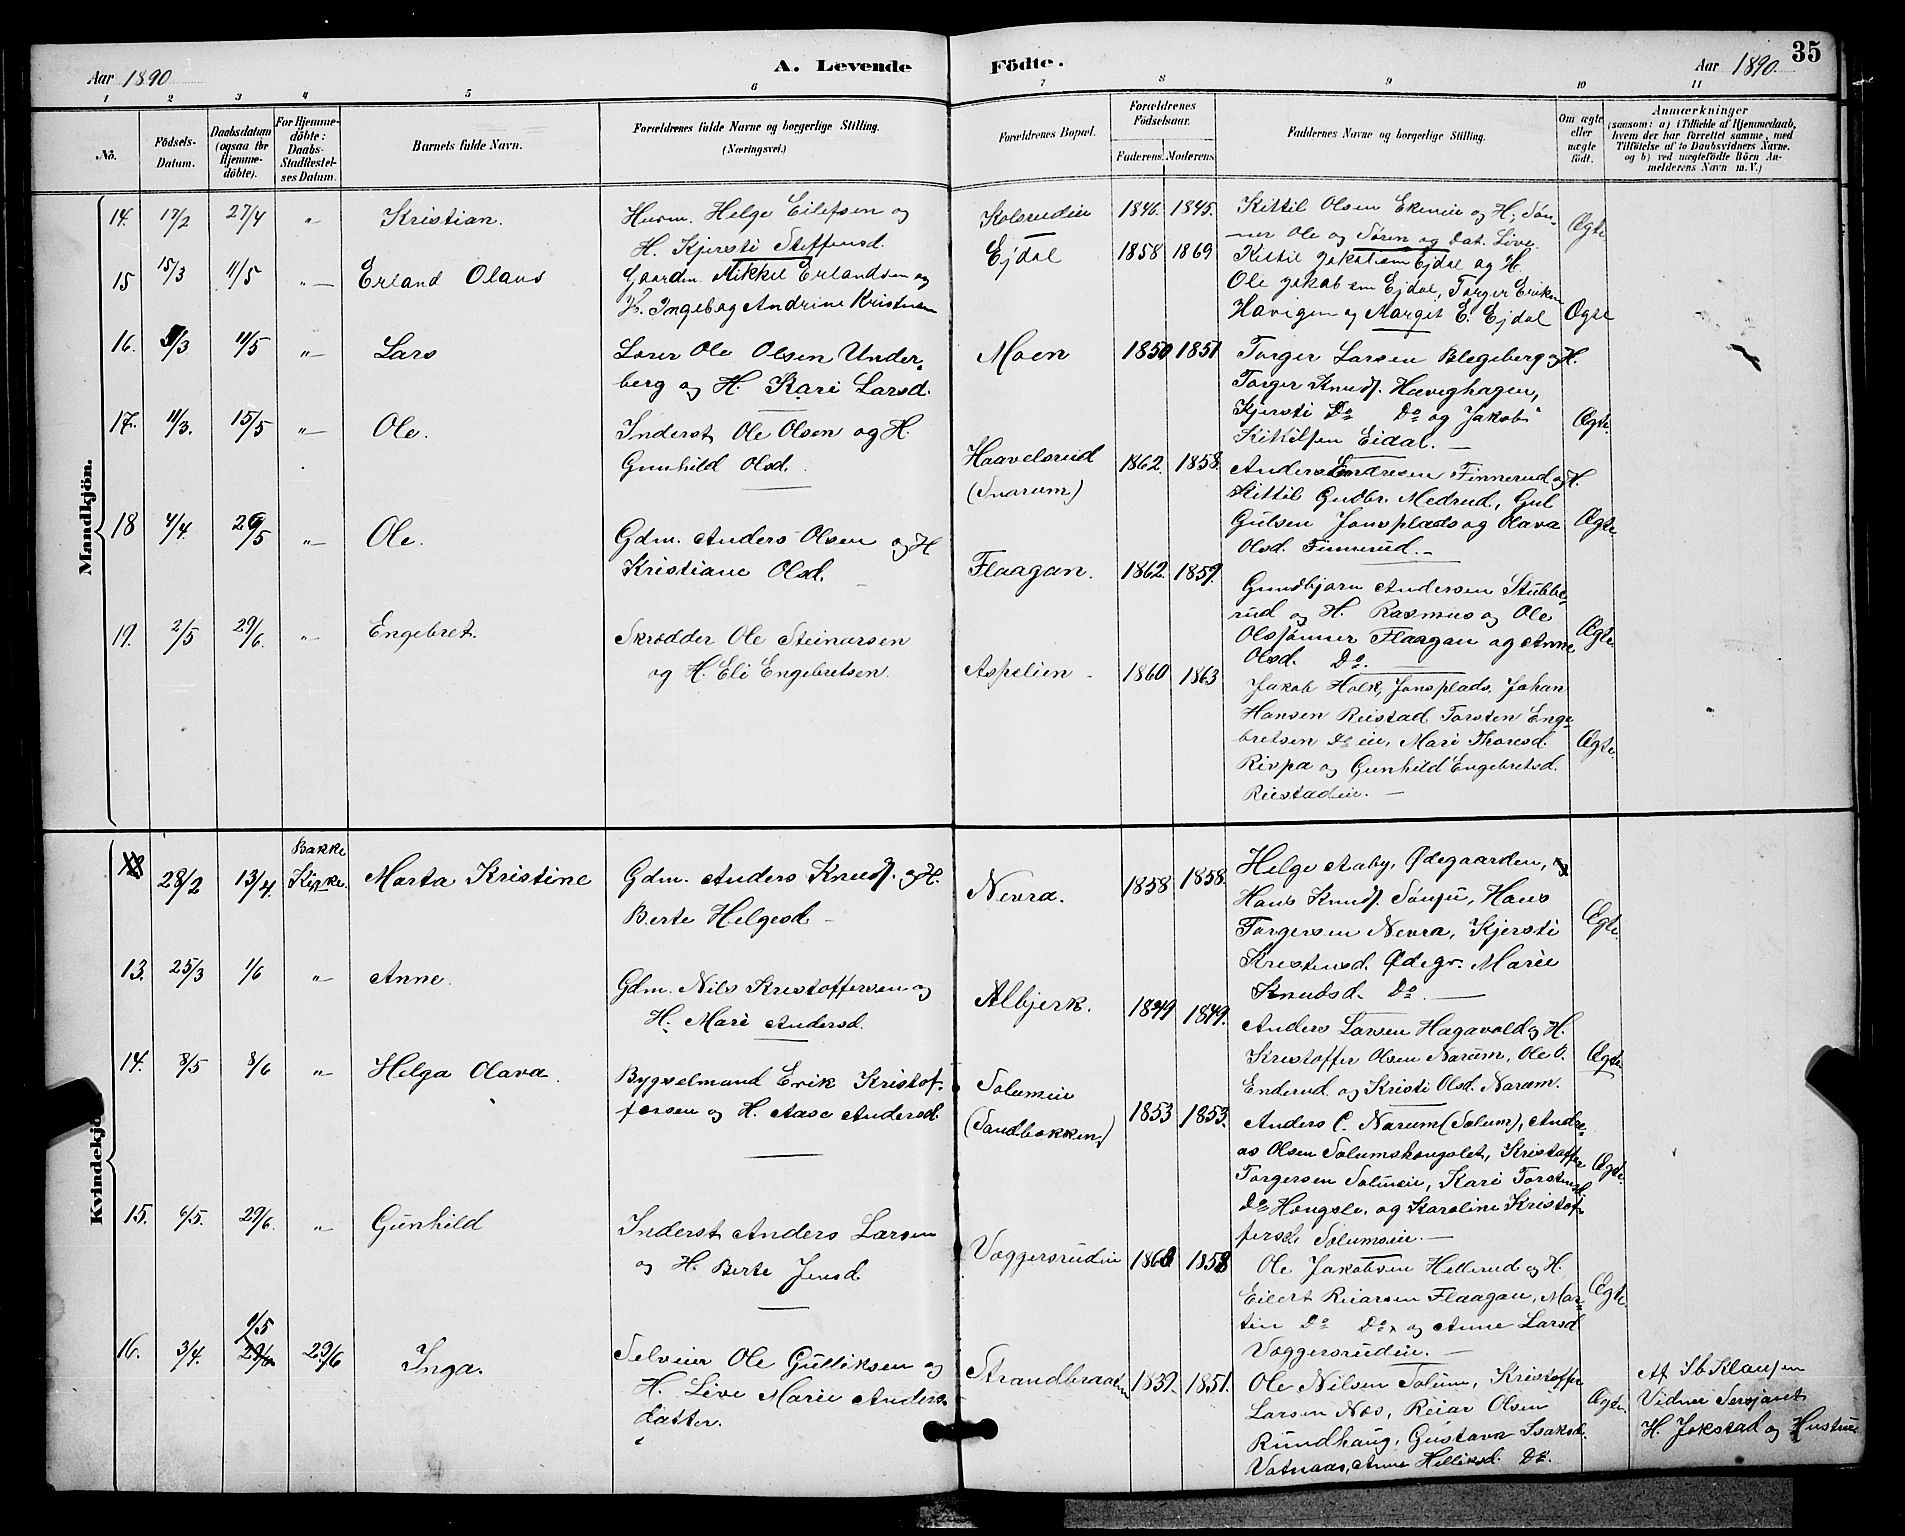 Aar 1890.
A. Levende Födte.
Aar 1890.
35
1 2 3 4 5 6 7 8 9 10 11
Nô.
Födsels-Datum.
Daabsdatum (ogsaa for Hjemmedöbte).
For Hjemmedöbte: Daabs-Stadfæstelses Datum.
Barnets fulde Navn.
Forældrenes fulde Navne og borgerlige Stilling. (Næringsvei.)
Forældrenes Bopæl.
Forældrenes Födselsaar.
Faderens. Moderens.
Faddernes Navne og borgerlige Stilling.
Om ægte eller uægte födt.
Anmærkninger
(saasom: a) i Tilfælde af Hjemmedaab,
hvem der har forrettet samme, med
Tilföielse af to Daabsvidners Navne.
og b) ved uægtefödte Börn Anmelderens Navn m. V.)
Mandkjön.
14. 17/2 27/4 " Kristian.
Huusm. Helge Eilefsen og
H. Kjersti Steffensd.
Kolsrudeie 1846. 1845.
Kittil Olsen Ekereie og H, Sönner
Ole og Sören og Dat. Live.
Ægte
15 15/3 11/5 " Erland Olaus
Gaardm. Mikkel Erlandsen og
H. Ingebog Andrine Kristensen
Ejdal 1858 1869
Kittil Jakobsen Ejdal og H.
Ole Jakobsen Ejdal, Torger Eriksen
Havigen og Marget E. Ejdal
Ægte
16. 9/3 11/5 " Lars
Lærer Ole Olsen Underberg
og H. Kari Larsd.
Moen 1850 1851
Torger Larsen Blegeberg og H.
Torger Knuds. Haveghagen,
Kjersti Do Do og Jakob
Kittilsen Eidal.
Ægte.
17. 11/3. 15/5 " Ole.
Inderst Ole Olsen og H.
Gunhild Olsd.
Haavelsrud (Snarum) 1862. 1858.
Anders Endresen Finnerud og H.
Kittil Gudbr. Medrud, Gul
Gulsen Jonsplads og Olava
Olsd. Finnerud.
Ægte
18 4/4. 26/5 " Ole.
Gdm. Anders Olsen og H
Kristiane Olsd.
Flaagan. 1862. 1859.
Gundbjørn Andersen Stubberud
og H. Rasmus og Ole
Olssønner Flaagan og Anne
Olsd. Do.
Ægte
19. 2/5 29/6. " Engebret.
Skrædder Ole Steinarsen
og H. Eli Engebretsen.
Aspelien 1860 1863
Jakob Holk, Jonsplads, Johan
Hansen Reistad Torsten Engebretsen
Do eie, Mari Thoresd.
Rispa og Gunhild Engebretsd.
Reistadeie.
Ægte.
Kvindekjön.
28/2 13/4. Bakke Kirke. Marta Kristine
Gdm. Anders Knuds. og H.
Berte Helgesd.
Nevra. 1858 1858.
Helge Aaby, Ødegaarden,
Hans Knuds. Sönju, Hans
Torgersen Nevra, Kjersti
Kristensd. Ødegr. Marie
Knudsd. Do.
Ægte.
13. 25/3 1/6 " Anne.
Gdm. Nils Kristoffersen og
H. Mari Andersd.
Albjerk. 1849 1849.
Anders Larsen Hagavold og H.
Kristoffer Olsen Narum, Ole O.
Enderud og Kristi Olsd. Narum.
Ægte
14. 8/5 8/6 " Helga Olava.
Bygselmand Erik Kristoffersen
og H. Aase Andersd.
Solumeie (Sandbakken) 1853 1853.
Anders C. Narum (Solum), Andreas
Olsen Solumshongslet, Kristoffer
Torgersen Solumeie, Kari Torstensd.
Do Hongsle, og Karoline Kristoffersd.
Solumseie.
Ægte.
15. 6/5. 29/6. " Gunhild
Inderst Anders Larsen
og H. Berte Jensd.
Væggersrudeie 1860 1858
Ole Jakobsen Hellerud og H.
Eilert Reiarsen Flaagan, Martin
Do Do, og Anne Larsd
Væggersrudeie.
Ægte.
16. 3/4. 9/5 29/6 29/6 Inga.
Selveier Ole Gulliksen og
H. Live Marie Andersdatter.
Strandbraaten 1839. 1851.
Ole Nilsen Solum, Kristoffer
Larsen Næs, Reiar Olsen
Rundhaug, Gustava Isaksd.
Vatnaas, Anne Helliksd. Do.
Ægte
Af Sb. Klausen
Vidner Sersjant
H. Jokstad og Hustrue